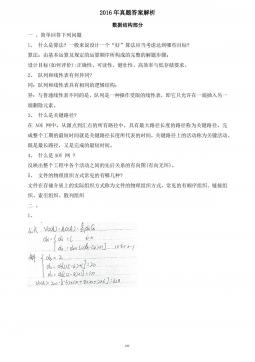 2016年真题答案解析
数据结构部分
一 、简单回答下列问题
1、 什么是算法？一般来说设计一个“好”算法应当考虑达到哪些目标？
算法：由基本运算及规定的运算顺序所构成的完整的解题步骤；
设计目标(如何评价)：正确性、可读性、健壮性、高效率与低存储要求。
2、 队列和线性表有何异同？
同：队列和线性表具有相同的逻辑结构；
异：与普通线性表不同的是，队列是一种操作受限的线性表，即它只允许在一端插入另一
端删除元素。
3、 什么是关键路径？
在 AOE 网中，从源点到汇点的所有路径中，具有最大路径长度的路径称为关键路径。完
成整个工期的最短时间就是关键路径长度所代表的时间。关键路径上的活动称为关键活动。
既是最长路径，又是完成的最短时间。
4、 什么是 AOE 网 ？
仅映出整个工程中各个活动之间的先后关系的有向图(有向无环)。
5、 文件的物理组织方式常见的有哪几种？
文件在存储介质上的实际组织方式称为文件的物理组织方式。常见的有顺序组织，链接组
织，索引组织，散列组织
二 、
1、